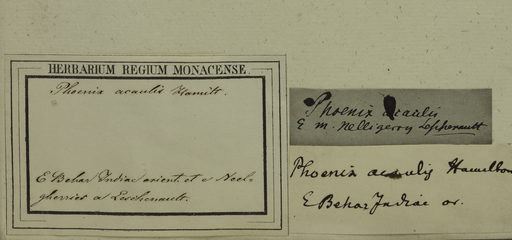 HERBARIUM REGIUM MONACENSE.
Phoenix acaulis Hamilt.
E Behar Indiae orient. et e Neel-
gherries a Leschenault.
Phoenix acaulis
E m. Nelligerry Leschenault
Phoenix acaulis Hamilton
E Behar Indiae or.